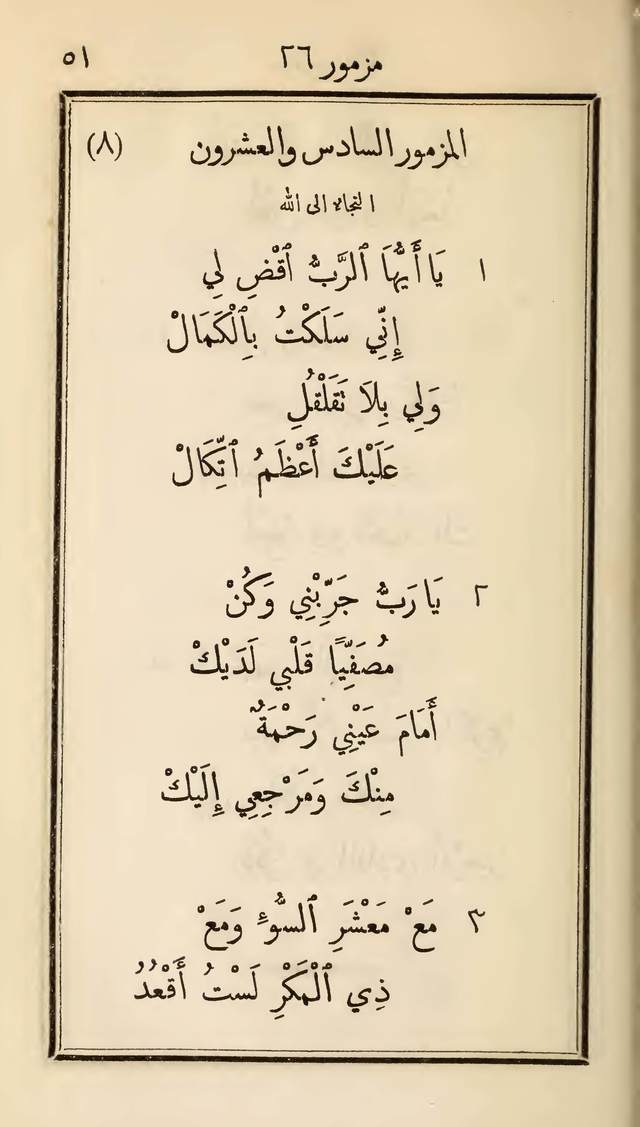 مزمور ٢٦ ٥١
المزمور السادس والعشرون (٨)
النجاة الى الله
١ يَا أَيُّهَا ٱلرَّبُّ ٱقْضِ لِي
إِنِّي سَلَكْتُ بِٱلْكَمَالْ
وَلِي بِلاَ تَقَلْقُلِ
عَلَيْكَ أَعْظَمُ ٱتِّكَالْ
٢ يَا رَبُّ جَرِّبْنِي وَكُنْ
مُصَفِّيًا قَلْبِي لَدَيْكْ
أَمَامَ عَيْنِي رَحْمَةٌ
مِنْكَ وَمَرْجِعِي إِلَيْكْ
٣ مَعْ مَعْشَرِ ٱلسُّوءِ وَمَعْ
ذِي ٱلْمَكْرِ لَسْتُ أَقْعُدُ